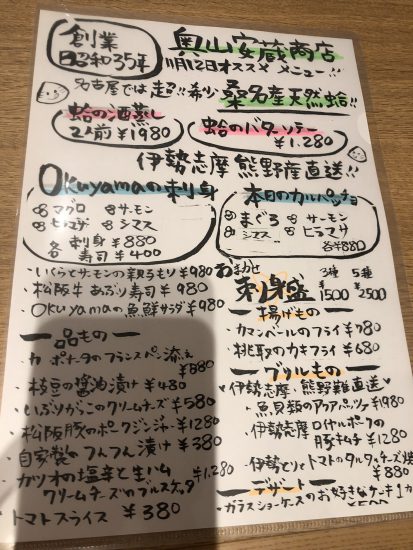 創業
昭和35年
奥山安蔵商店
11月12日オススメ メニュー!!
名古屋では超!!希少 桑名産天然蛤!!
蛤の酒蒸し
2人前 ¥1980
蛤のバターソテー
¥1.280
伊勢志摩 熊野産直送!!
Okuyamaの刺身
マグロ サーモン
ヒラマサ シマアジ
各 刺身 ¥880
寿司 ¥400
本日のカルパッチョ
まぐろ サーモン
シマアジ ヒラマサ
各¥880
・いくらとサーモンの親子もり ¥980
・松阪牛あぶり寿司 ¥980
・Okuyamaの魚鮮サラダ ¥980
おまかせ
刺身盛
3種 5種
¥1500 ¥2500
一品もの
・カポナータのフランスパン添え
¥880
・枝豆の醤油漬け ¥480
・いぶりがっこのクリームチーズ ¥580
・松阪豚のポークジンジャー ¥1280
・自家製のつんつん漬け ¥380
・カツオの塩辛と生ハム
クリームチーズのブルスケッタ
¥1.280
トマトスライス ¥380
揚げもの
・カマンベールのフライ ¥780
・桃取のカキフライ ¥680
グリルもの
伊勢志摩・熊野灘直送
・魚貝類のアクアパッツァ ¥1980
・伊勢志摩ロイヤルポークの
豚キムチ ¥1280
・伊勢どりとトマトのタルタルチーズ焼
¥880
デザート
・ガラスショーケースのお好きなケーキ1カ